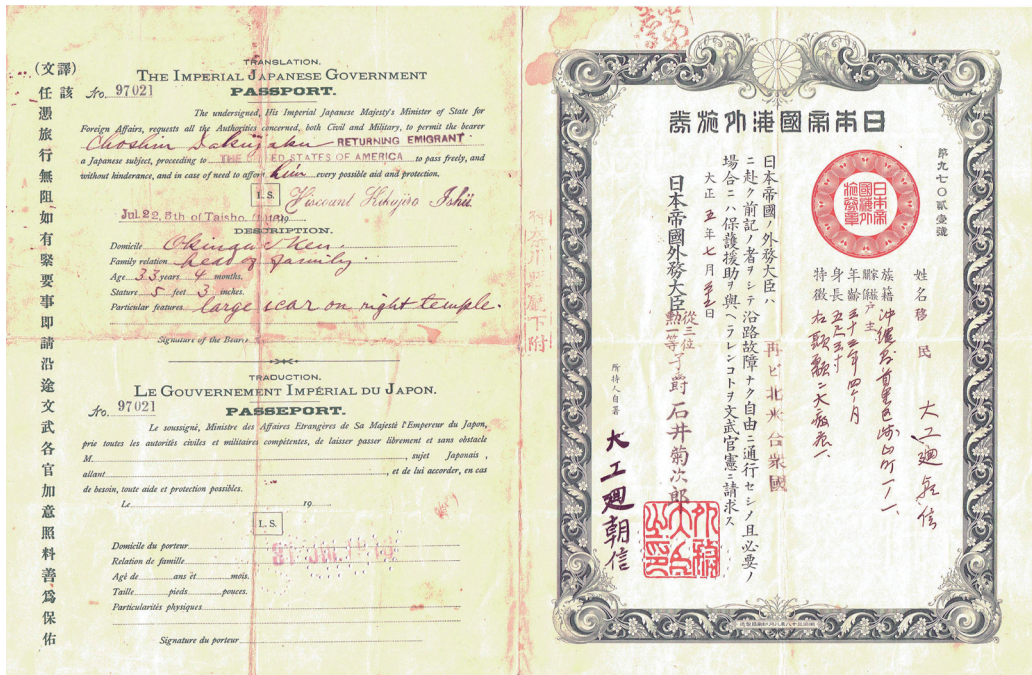 (文譯)
該
任憑旅行無阻如有緊要事即請沿途文武各官加意照料善爲保佑
TRANSLATION.
THE IMPERIAL JAPANESE GOVERNMENT
No. 97021 PASSPORT.
The undersigned, His Imperial Japanese Majesty's Minister of State for
Foreign Affairs, requests all the Authorities concerned, both Civil and Military, to permit the bearer
Choshin Dakujaku RETURNING EMIGRANT
a Japanese subject, proceeding to THE UNITED STATES OF AMERICA to pass freely, and
without hinderance, and in case of need to afford him every possible aid and protection.
L.S. Viscount Kikujiro Ishii
Jul. 22, 5th of Taisho.
DESCRIPTION.
Domicile Okinawa Ken.
Family relation head of family.
Age 33 years 4 months.
Stature 5 feet 3 inches.
Particular features large scar on right temple.
Signature of the Bearer
TRADUCTION.
LE GOUVERNEMENT IMPÉRIAL DU JAPON.
No. 97021 PASSEPORT.
Le soussigné, Ministre des Affaires Etrangères de Sa Majesté l'Empereur du Japon,
prie toutes les autorités civiles et militaires compétentes, de laisser passer librement et sans obstacle
M. , sujet Japonais ,
allant , et de lui accorder, en cas
de besoin, toute aide et protection possibles.
Le 19
L.S.
Domicile du porteur
Relation de famille
Agé de ans et mois.
Taille pieds pouces.
Particularités physiques
Signature du porteur
日本帝國海外旅券
第九七〇貳壹號
日本帝國海外旅券章
姓名 移民 大工廻朝信
族籍 沖縄縣首里區
戸主
年齢 三十三年四ヶ月
身長 五尺三寸
特徴
再ビ北米合衆國
日本帝國ノ外務大臣ハ
ニ赴ク前記ノ者ヲシテ沿路故障ナク自由ニ通行セシメ且必要ノ
場合ニハ保護援助ヲ與ヘラレンコトヲ文武官憲ニ請求ス
大正五年七月 日
日本帝國外務大臣 從三位勲一等子爵 石井菊次郎
外務大臣之印
所持人自署
大工廻朝信